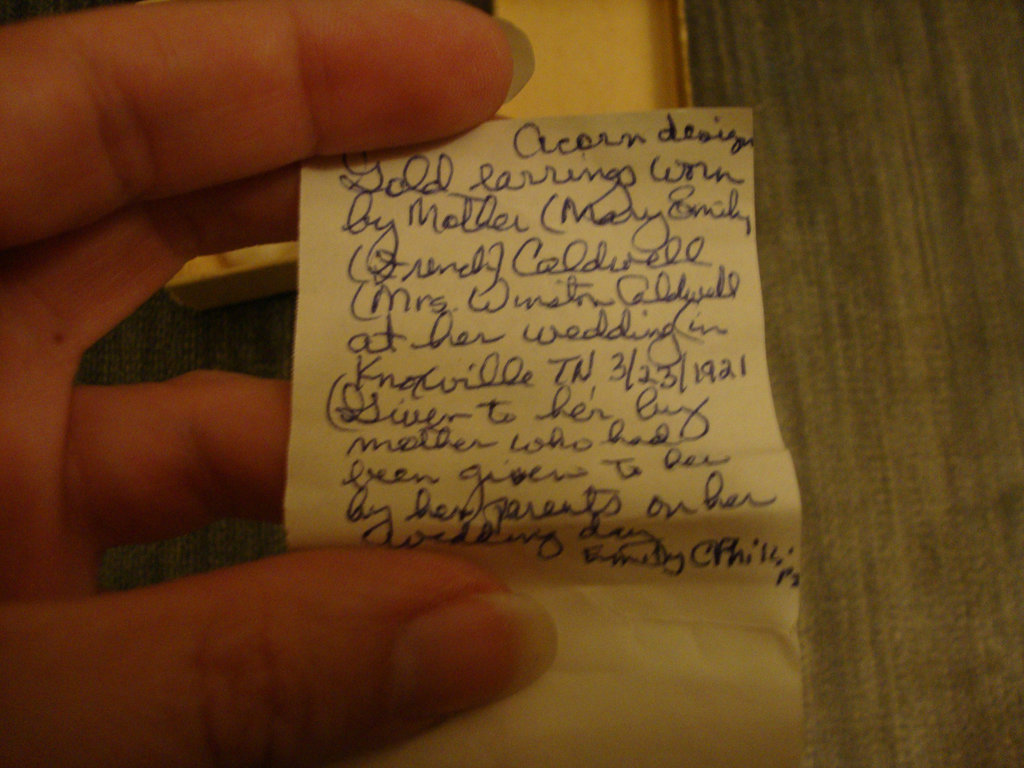 Acorn design
Gold earrings worn
by Mother (Mary Emily
(French) Caldwell
(Mrs. Winston Caldwell
at her wedding in
Knoxville TN, 3/23/1921
(Given to her by
mother who had
been given to her
by her parents on her
wedding day
Emily C Phillips